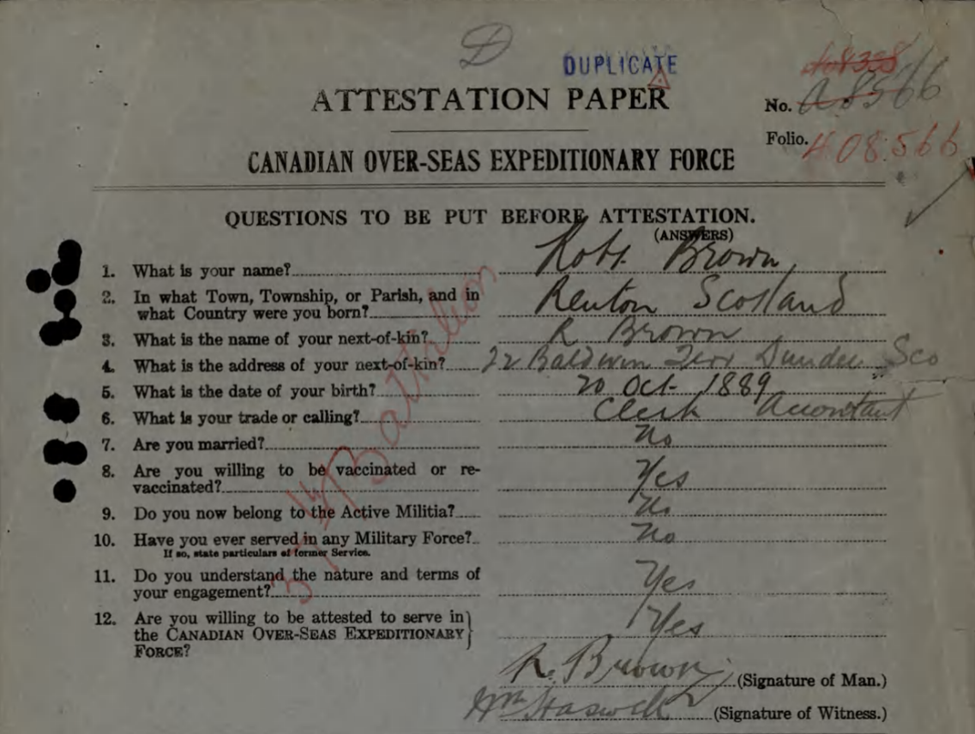 D
DUPLICATE
ATTESTATION PAPER
No. A8566
Folio. 408.566
CANADIAN OVER-SEAS EXPEDITIONARY FORCE
QUESTIONS TO BE PUT BEFORE ATTESTATION.
(ANSWERS)
1. What is your name? Robt Brown
2. In what Town, Township, or Parish, and in
what Country were you born? Renton Scotland
3. What is the name of your next-of-kin? R Brown
4. What is the address of your next-of-kin? 22 Baldwin Terr Dundee Sco
5. What is the date of your birth? 20 Oct 1889
6. What is your trade or calling? Clerk Accontant
7. Are you married? No
8. Are you willing to be vaccinated or re-
vaccinated? Yes
9. Do you now belong to the Active Militia? No
10. Have you ever served in any Military Force? No
If so, state particulars of former Service.
11. Do you understand the nature and terms of
your engagement? Yes
12. Are you willing to be attested to serve in
the CANADIAN OVER-SEAS EXPEDITIONARY
FORCE? Yes
R. Brown (Signature of Man.)
Wm (Signature of Witness.)
37th Battalion